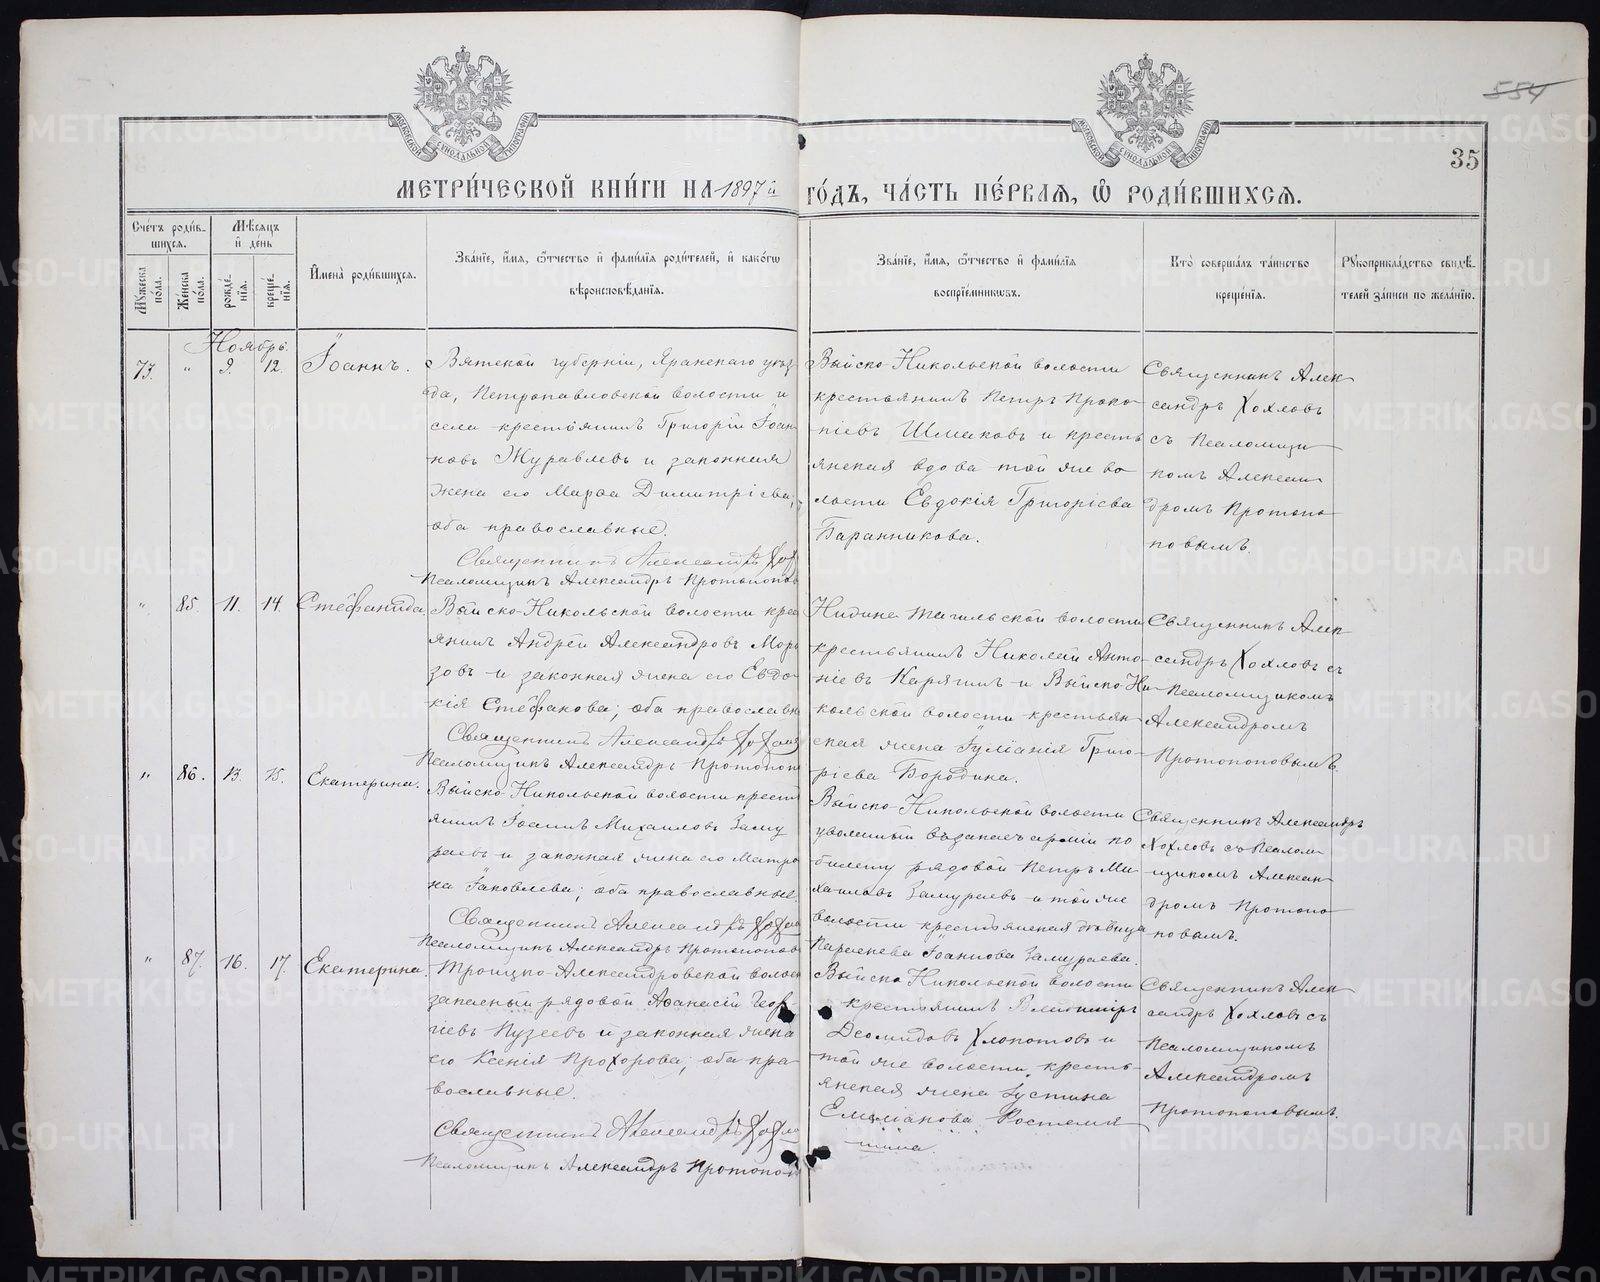 554
35
МЕТРИ́ЧЕСКОЙ КНИ́ГИ НА 1897й ГО́ДЪ, ЧА́СТЬ ПЕ́РВАѦ, Ѡ҆ РОДИ́ВШИХСѦ.
Сче́тъ роди́в-
шихсѧ.
Мꙋжеска по́ла.
Же́нска по́ла.
Мѣ́сѧцъ
и҆ де́нь
рожде́-нїѧ.
креще́-нїѧ.
И҆мена̀ роди́вшихсѧ.
Зва́нїе, и҆́мѧ, ѻ҆́тчество и҆ фами́лїѧ роди́телей, и҆ како́гѡ
вѣроисповѣ́данїѧ.
Зва́нїе, и҆́мѧ, ѻ҆́тчество и҆ фами́лїѧ
воспрїе́мникѡвъ.
Кто̀ соверша́лъ та́инство
креще́нїѧ.
Рꙋкоприкла́дство свидѣ́-
телей за́писи по жела́нїю.
Ноябрь.
73. " 9. 12. Іоаннъ.
Вятской губерніи, Яранскаго уѣз-
да, Петропавловской волости и
села крестьянинъ Григорій Іоан-
новъ Журавлевъ и законная
жена его Марѳа Димитріева,
оба православные.
Священникъ Александръ Хохл
Псаломщикъ Александръ Протопопов
Выйско-Никольской волости
крестьянинъ Петръ Проко-
піевъ Шмаковъ и кресть
янская вдова той же во-
лости Евдокія Григоріева
Баранникова.
Священникъ Алек-
сандръ Хохловъ
съ Псаломщи-
комъ Алексан-
дромъ Протопо-
повымъ.
" 85. 11. 14. Стефанида.
Выйско-Никольской волости крес
янинъ Андрей Александровъ Моро
зовъ и законная жена его Евдо-
кія Стефанова; оба православн
Священникъ Александръ Хохлов
Псаломщикъ Александръ Протопоп
Нижне Тагильской волости
крестьянинъ Николай Анто-
ніевъ Карягинъ и Выйско-Ни-
кольской волости крестьян-
ская жена Іуліанія Григо-
ріева Бородина.
Священникъ Алек-
сандръ Хохловъ съ
Псаломщикомъ
Александромъ
Протопоповымъ.
" 86. 13. 15. Екатерина.
Выйско-Никольской волости крестья
янинъ Іоаннъ Михаиловъ Заму
раевъ и законная жена его Матро
на Іаковлева; оба православные.
Священникъ Александръ Хохлов
Псаломщикъ Александръ Протопопов
Выйско-Никольской волости
уволенный въ запасъ арміи по
билету рядовой Петръ Ми-
хаиловъ Замураевъ и той же
волости крестьянская дѣвица
Параскева Іоаннова Замураева.
Священникъ Александръ
Хохловъ съ Псалом-
щикомъ Алексан-
дромъ Протопо-
повымъ.
" 87. 16. 17. Екатерина.
Троицко-Александровской волос
запасный рядовой Аѳанасій Геор-
гіевъ Пузеевъ и законная жена
его Ксенія Прохорова; оба пра-
вославные.
Священникъ Александръ Хохло
Псаломщикъ Александръ Протопопо
Выйско Никольской волости
крестьянинъ Владиміръ
Деомидовъ Хлопотовъ и
той же волости, кресть-
янская жена Іустина
Емиліанова
Священникъ Алек-
сандръ Хохловъ съ
Псаломщикомъ
Александромъ
Протопоповымъ.